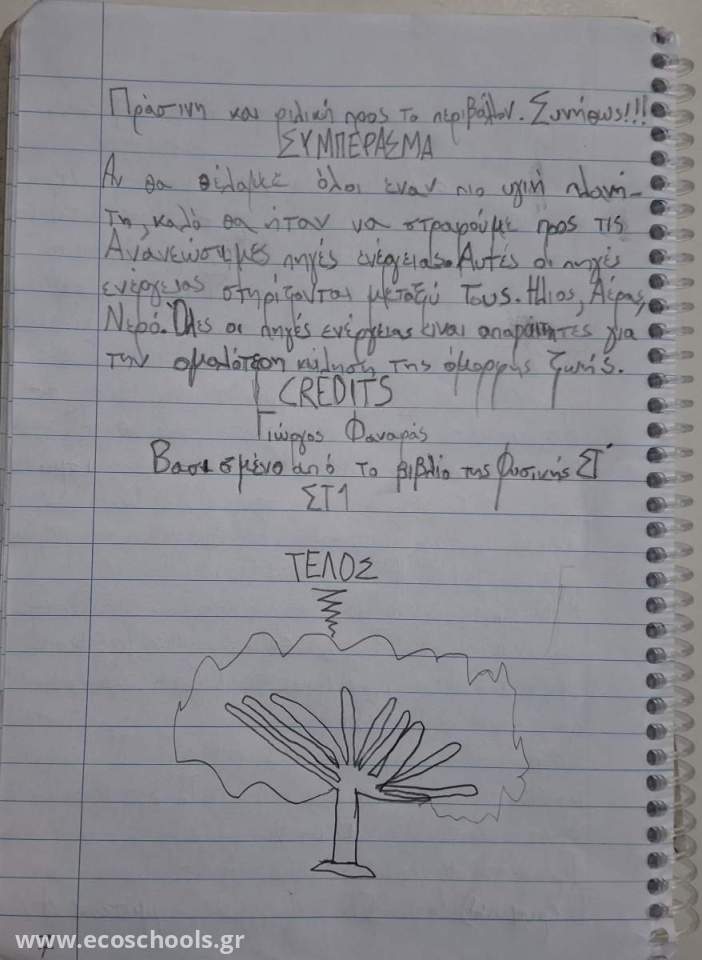 Πράσινη και φιλική προς το περιβάλλον. Συνήθως!!!
ΣΥΜΠΕΡΑΣΜΑ
Αν θα θέλαμε όλοι έναν πιο υγιή πλανή-
τη, καλό θα ήταν να στραφούμε προς τις
Ανανεώσιμες πηγές ενέργειας. Αυτές οι πηγές
ενέργειας στηρίζονται μεταξύ τους. Ήλιος, Αέρας,
Νερό. Όλες οι πηγές ενέργειας είναι απαραίτητες για
την ομαλότερη κύληση της όμορφης ζωής.
CREDITS
Γιώργος Φαναράς
Βασισμένο από το βιβλίο της Φυσικής ΣΤ΄
ΣΤ1
ΤΕΛΟΣ
www.ecoschools.gr